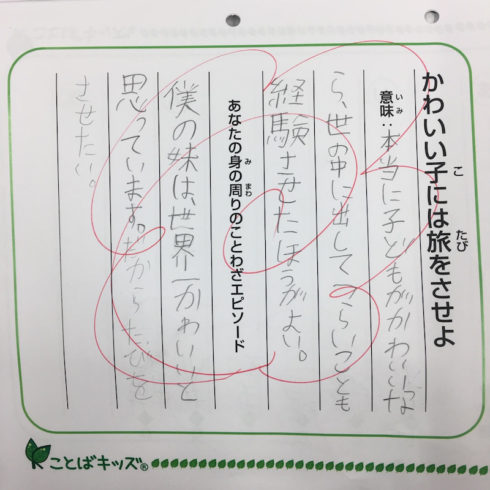 ことばキッズ®
かわいい子には旅をさせよ
こ
たび
意味：本当に子どもがかわいいな
いみ
ら、世の中に出してつらいことも
経験させたほうがよい。
あなたの身の周りのことわざエピソード
み
まわ
僕の妹は、世界一かわいいと
思っています。だからたびを
させたい。
ことばキッズ®